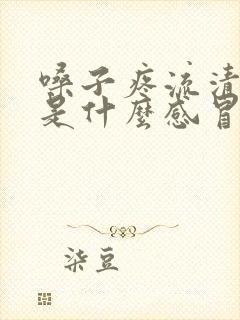 嗓子疼流清
是什麼感冒
柒豆